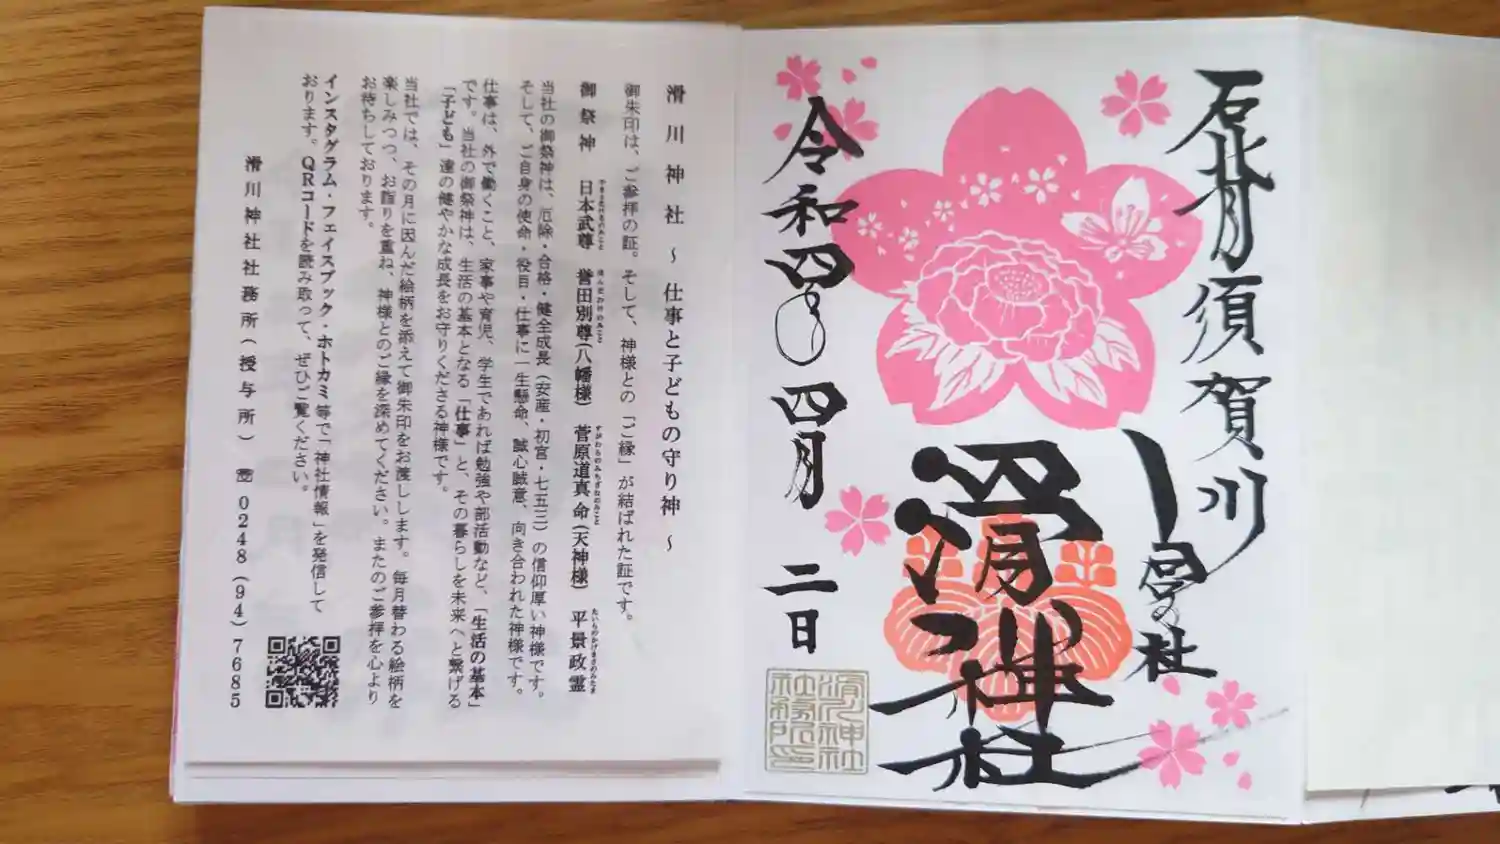 石背須賀川
総社
滑川神社
令和四年四月二日
滑川神社社務所印
滑川神社 ～ 仕事と子どもの守り神 ～
御朱印は、ご参拝の証。そして、神様との「ご縁」が結ばれた証です。
御祭神 日本武尊 誉田別尊(八幡様) 菅原道真命(天神様) 平景政霊
やまとたけるのみこと ほんだわけのみこと すがわらのみちざねのみこと たいらのかげまさのみたま
当社の御祭神は、厄除・合格・健全成長(安産・初宮・七五三)の信仰厚い神様です。
そして、ご自身の使命・役目・仕事に一生懸命、誠心誠意、向き合われた神様です。
仕事は、外で働くこと、家事や育児、学生であれば勉強や部活動など、「生活の基本」
です。当社の御祭神は、生活の基本となる「仕事」と、その暮らしを未来へと繋げる
「子ども」達の健やかな成長をお守りくださる神様です。
当社では、その月に因んだ絵柄を添えて御朱印をお渡しします。毎月替わる絵柄を
楽しみつつ、お詣りを重ね、神様とのご縁を深めてください。またのご参拝を心より
お待ちしております。
インスタグラム・フェイスブック・ホトカミ等で「神社情報」を発信して
おります。QRコードを読み取って、ぜひご覧ください。
滑川神社社務所(授与所) ☎ 0248(94)7685